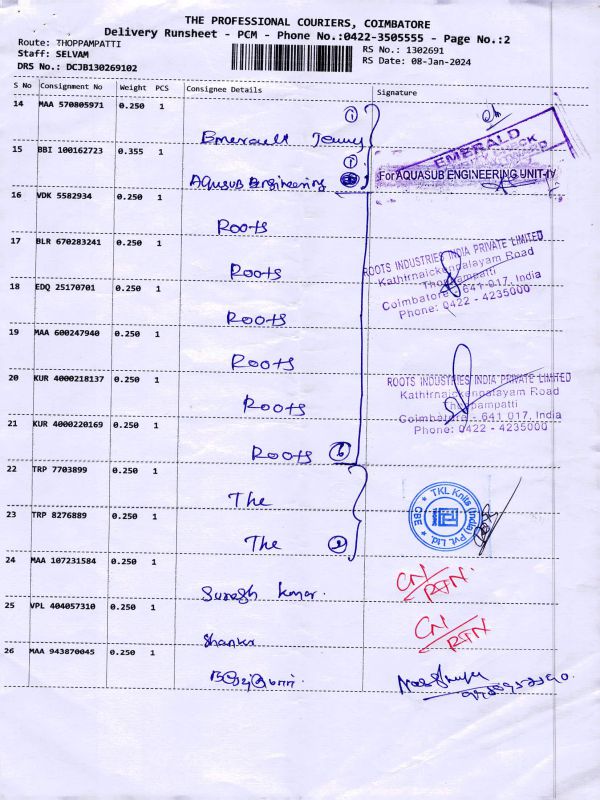 THE PROFESSIONAL COURIERS, COIMBATORE
Delivery Runsheet - PCM - Phone No.:0422-3505555 - Page No.:2
Route: THOPPAMPATTI
Staff: SELVAM
DRS No.: DCJB130269102
RS No.: 1302691
RS Date: 08-Jan-2024
S No Consignment No Weight PCS Consignee Details Signature
14 MAA 570805971 0.250 1 ①
EMERALD
15 BBI 100162723 0.355 1 ①
Aquasub Engineering
For AQUASUB ENGINEERING UNIT-IV
16 VDK 5582934 0.250 1
Roots
17 BLR 670283241 0.250 1
Roots
ROOTS INDUSTRIES INDIA PRIVATE LIMITED
Kathirnaickenpalayam Road
Thoppampatti
Coimbatore - 641 017, India
Phone: 0422 - 4235000
18 EDQ 25170701 0.250 1
Roots
19 MAA 600247940 0.250 1
Roots
20 KUR 4000218137 0.250 1
Roots
ROOTS INDUSTRIES INDIA PRIVATE LIMITED
Kathirnaickenpalayam Road
Thoppampatti
Coimbatore - 641 017, India
Phone: 0422 - 4235000
21 KUR 4000220169 0.250 1
Roots ⑥
22 TRP 7703899 0.250 1
The
23 TRP 8276889 0.250 1
The ②
TKL Knits (India) Pvt. Ltd.
CBE
24 MAA 107231584 0.250 1
Suresh Kumar.
CN/RTN
25 VPL 404057310 0.250 1
Shankar
CN/RTN
26 MAA 943870045 0.250 1